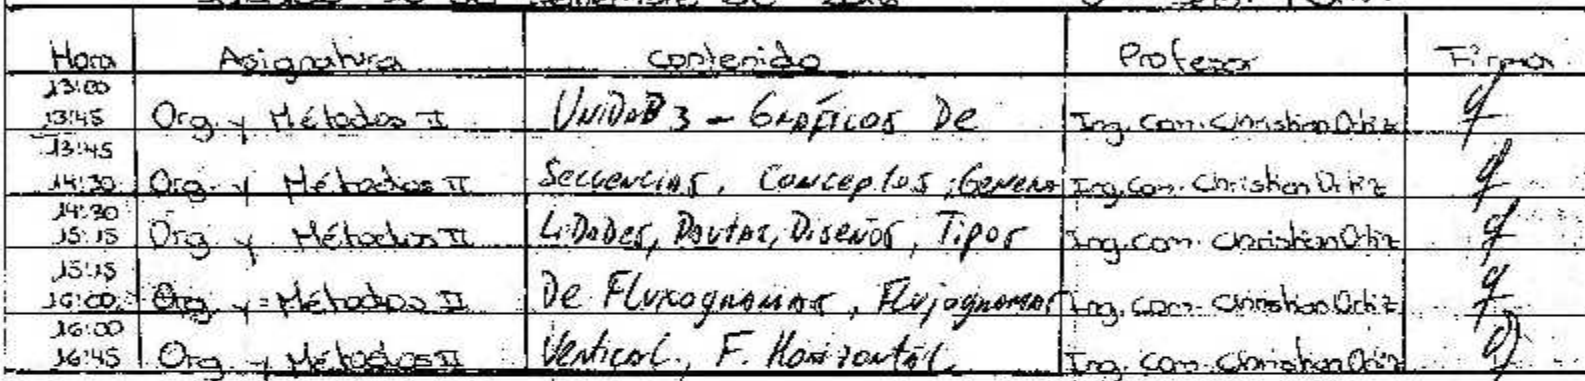 Hora Asignatura Contenido Profesor Firma
13:00
13:45 Org. y Métodos II UNIDAD 3 - GRÁFICOS DE Ing. Com. Christian Ortiz
13:45
14:30 Org. y Métodos II SECUENCIAS, CONCEPTOS, GENERA Ing. Com. Christian Ortiz
14:30
15:15 Org. y Métodos II LIDADES, PAUTAS, DISEÑOS, TIPOS Ing. Com. Christian Ortiz
15:15
16:00 Org. y Métodos II DE FLUXOGRAMAS, FLUJOGRAMAS Ing. Com. Christian Ortiz
16:00
16:45 Org. y Métodos II VERTICAL, F. HORIZONTAL Ing. Com. Christian Ortiz